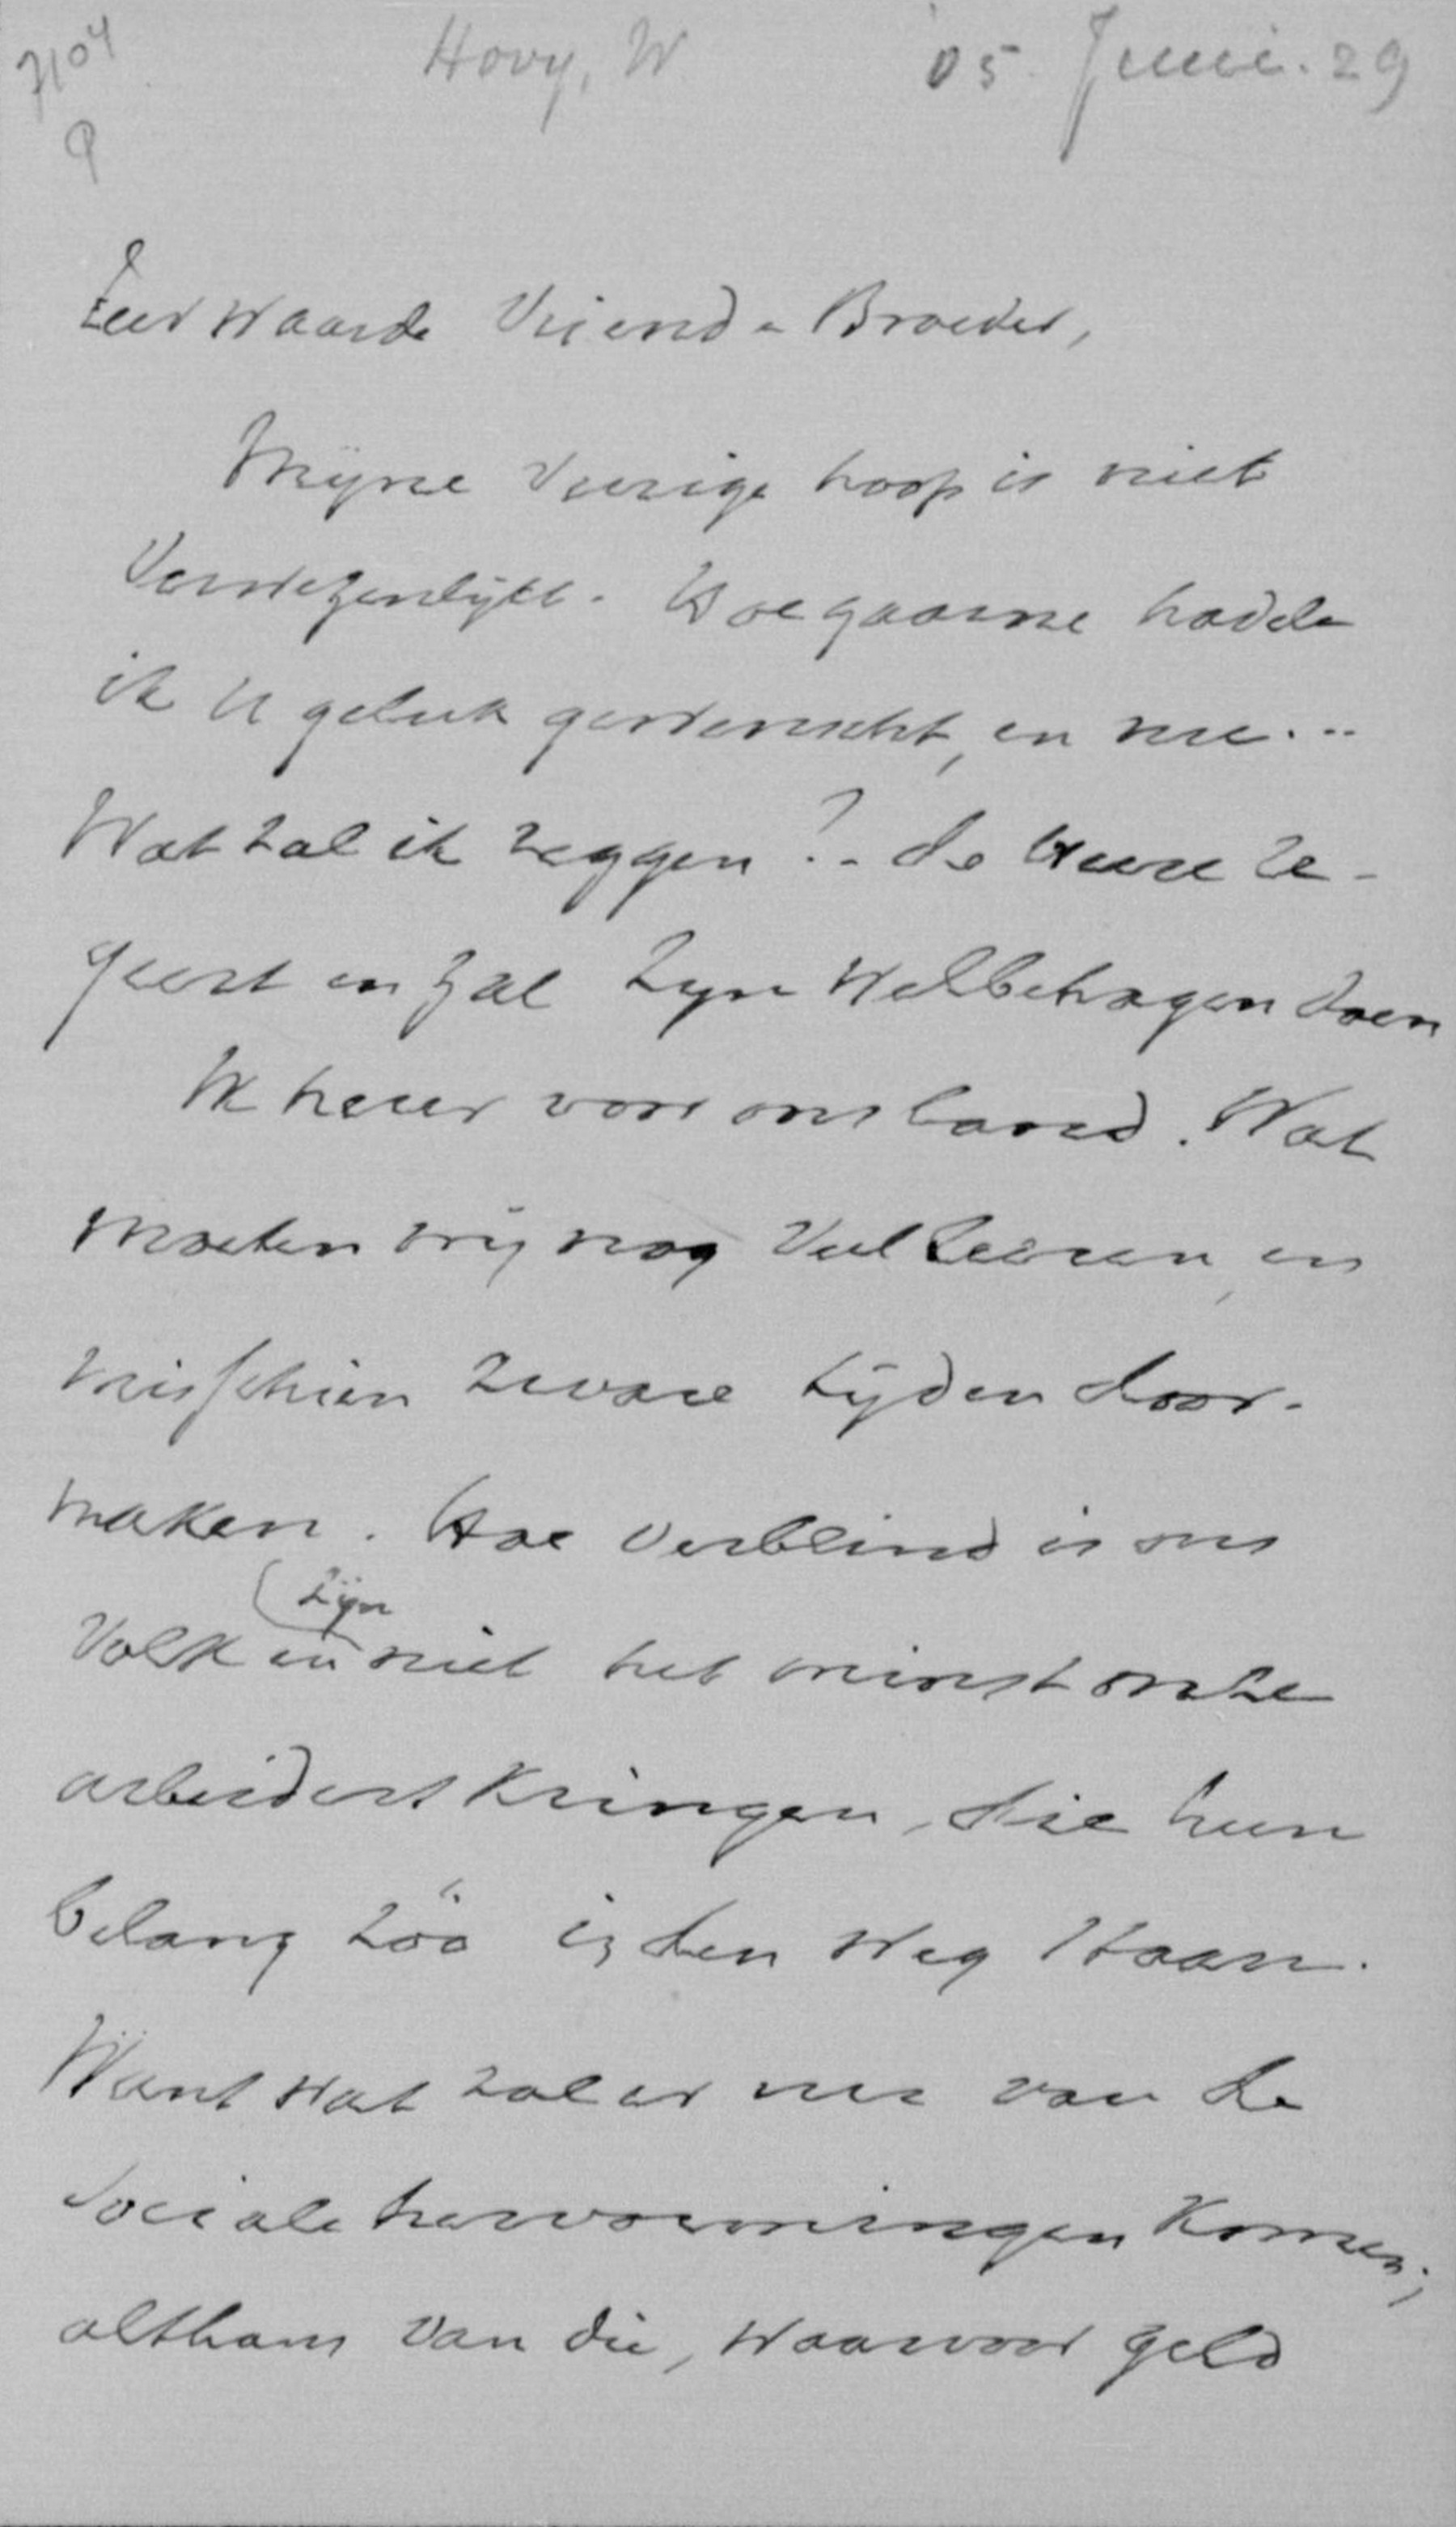 7104
Hovy, W '05 Juni. 29
Zeer Waarde Vriend & Broeder,
Mijne vurige hoop is niet
Verwezenlijkt. Hoe gaarne hadde
ik U geluk gewenscht, en nu...
Wat zal ik zeggen? - de Heere re-
geert en zal Zijn Welbehagen doen
Ik treur voor ons land. Wat
moeten wij nog Veel leeren, en
misschien zware tijden door-
maken. Hoe verblind is ons
(zijn
Volk en niet het minst onze
arbeiderskringen, die hun
belang zóó in den weg staan.
Want wat zal er nu van de
Sociale hervormingen komen;
althans van die, waarvoor geld